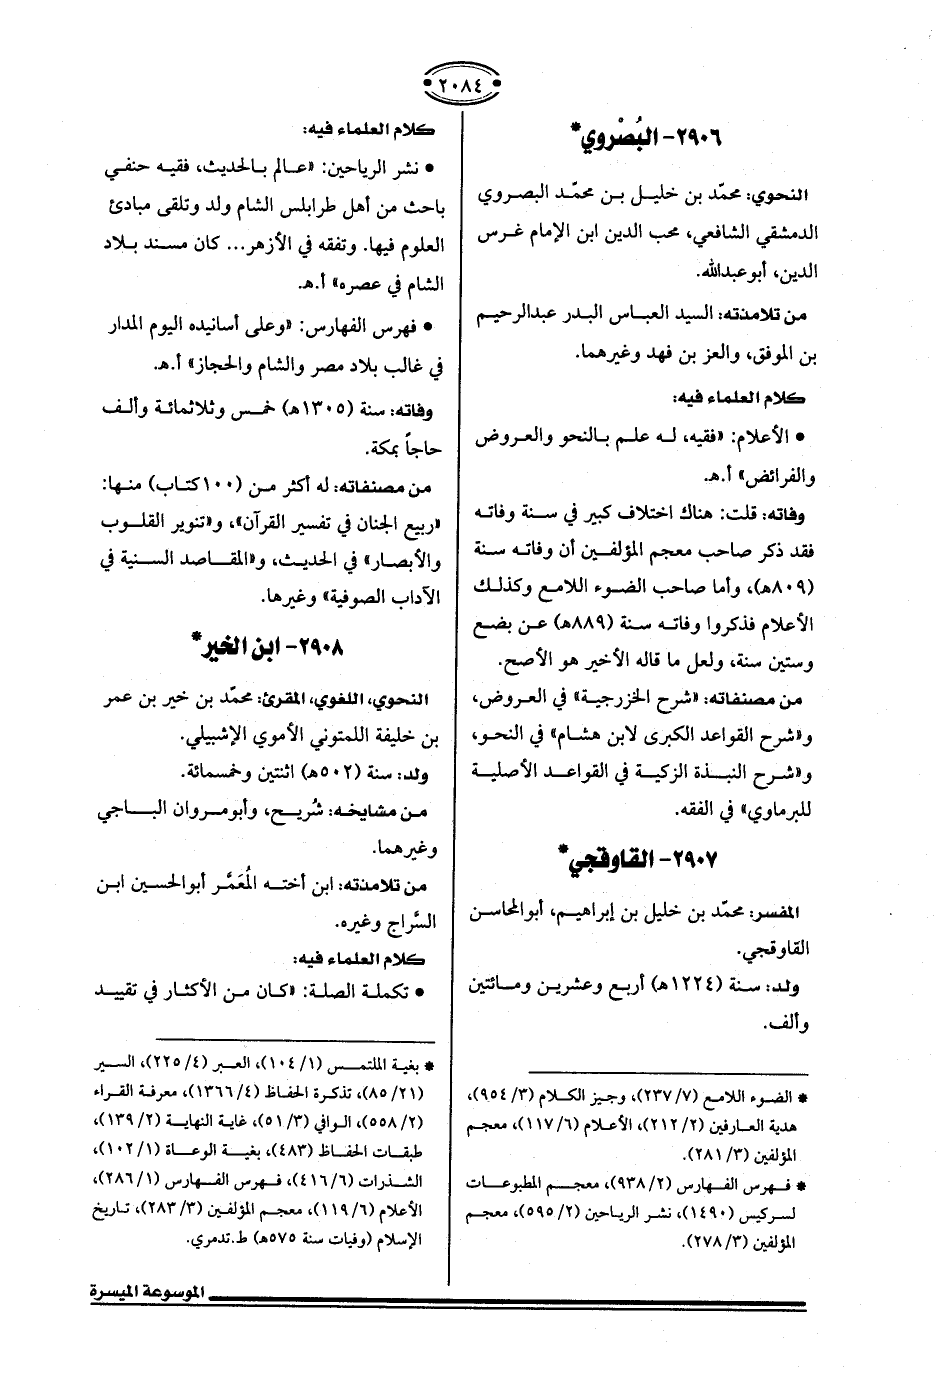 ٢٠٨٤
٢٩٠٦- البُصْروي*
النحوي: محمّد بن خليل بن محمّد البصروي
الدمشقي الشافعي، محب الدين ابن الإمام غرس
الدين، أبوعبدالله.
من تلامذته: السيد العباس البدر عبدالرحيم
بن الموفق، والعز بن فهد وغيرهما.
كلام العلماء فيه:
• الأعلام: «فقيه، له علم بالنحو والعروض
والفرائض» أ.هـ.
وفاته: قلت: هناك اختلاف كبير في سنة وفاته
فقد ذكر صاحب معجم المؤلفين أن وفاته سنة
(٨٠٩هـ)، وأما صاحب الضوء اللامع وكذلك
الأعلام فذكروا وفاته سنة (٨٨٩هـ) عن بضع
وستين سنة، ولعل ما قاله الأخير هو الأصح.
من مصنفاته: «شرح الخزرجية» في العروض،
و«شرح القواعد الكبرى لابن هشام» في النحو،
و«شرح النبذة الزكية في القواعد الأصلية
للبرماوي» في الفقه.
٢٩٠٧- القاوقجي*
المفسر: محمّد بن خليل بن إبراهيم، أبوالمحاسن
القاوقجي.
ولد: سنة (١٢٢٤هـ) أربع وعشرين ومائتين
وألف.
* الضوء اللامع (٢٣٧/٧)، وجيز الكلام (٩٥٤/٣)،
هدية العارفين (٢١٢/٢)، الأعلام (١١٧/٦)، معجم
المؤلفين (٢٨١/٣).
* فهرس الفهارس (٩٣٨/٢)، معجم المطبوعات
لسركيس (١٤٩٠)، نشر الرياحين (٥٩٥/٢)، معجم
المؤلفين (٢٧٨/٣).
كلام العلماء فيه:
• نشر الرياحين: «عالم بالحديث، فقيه حنفي
باحث من أهل طرابلس الشام ولد وتلقى مبادئ
العلوم فيها. وتفقه في الأزهر... كان مسند بلاد
الشام في عصره» أ.هـ.
• فهرس الفهارس: «وعلى أسانيده اليوم المدار
في غالب بلاد مصر والشام والحجاز» أ.هـ.
وفاته: سنة (١٣٠٥هـ) خمس وثلاثمائة وألف
حاجاً بمكة.
من مصنفاته: له أكثر من (١٠٠كتاب) منها:
«ربيع الجنان في تفسير القرآن»، و«تنوير القلوب
والأبصار» في الحديث، و«المقاصد السنية في
الآداب الصوفية» وغيرها.
٢٩٠٨- ابن الخير*
النحوي، اللغوي، المقرئ: محمّد بن خير بن عمر
بن خليفة اللمتوني الأموي الإشبيلي.
ولد: سنة (٥٠٢هـ) اثنتين وخمسمائة.
من مشايخه: شُريح، وأبومروان الباجي
وغيرهما.
من تلامذته: ابن أخته المُعَمَّر أبوالحسين ابن
السَّراج وغيره.
كلام العلماء فيه:
• تكملة الصلة: «كان من الأكثار في تقييد
* بغية الملتمس (١٠٤/١)، العبر (٢٢٥/٤)، السير
(٨٥/٢١)، تذكرة الحفاظ (١٣٦٦/٤)، معرفة القراء
(٥٥٨/٢)، الوافي (٥١/٣)، غاية النهاية (١٣٩/٢)،
طبقات الحفاظ (٤٨٣)، بغية الوعاة (١٠٢/١)،
الشذرات (٤١٦/٦)، فهرس الفهارس (٢٨٦/١)،
الأعلام (١١٩/٦)، معجم المؤلفين (٢٨٣/٣)، تاريخ
الإسلام (وفيات سنة ٥٧٥هـ) ط.تدمري.
الموسوعة الميسرة